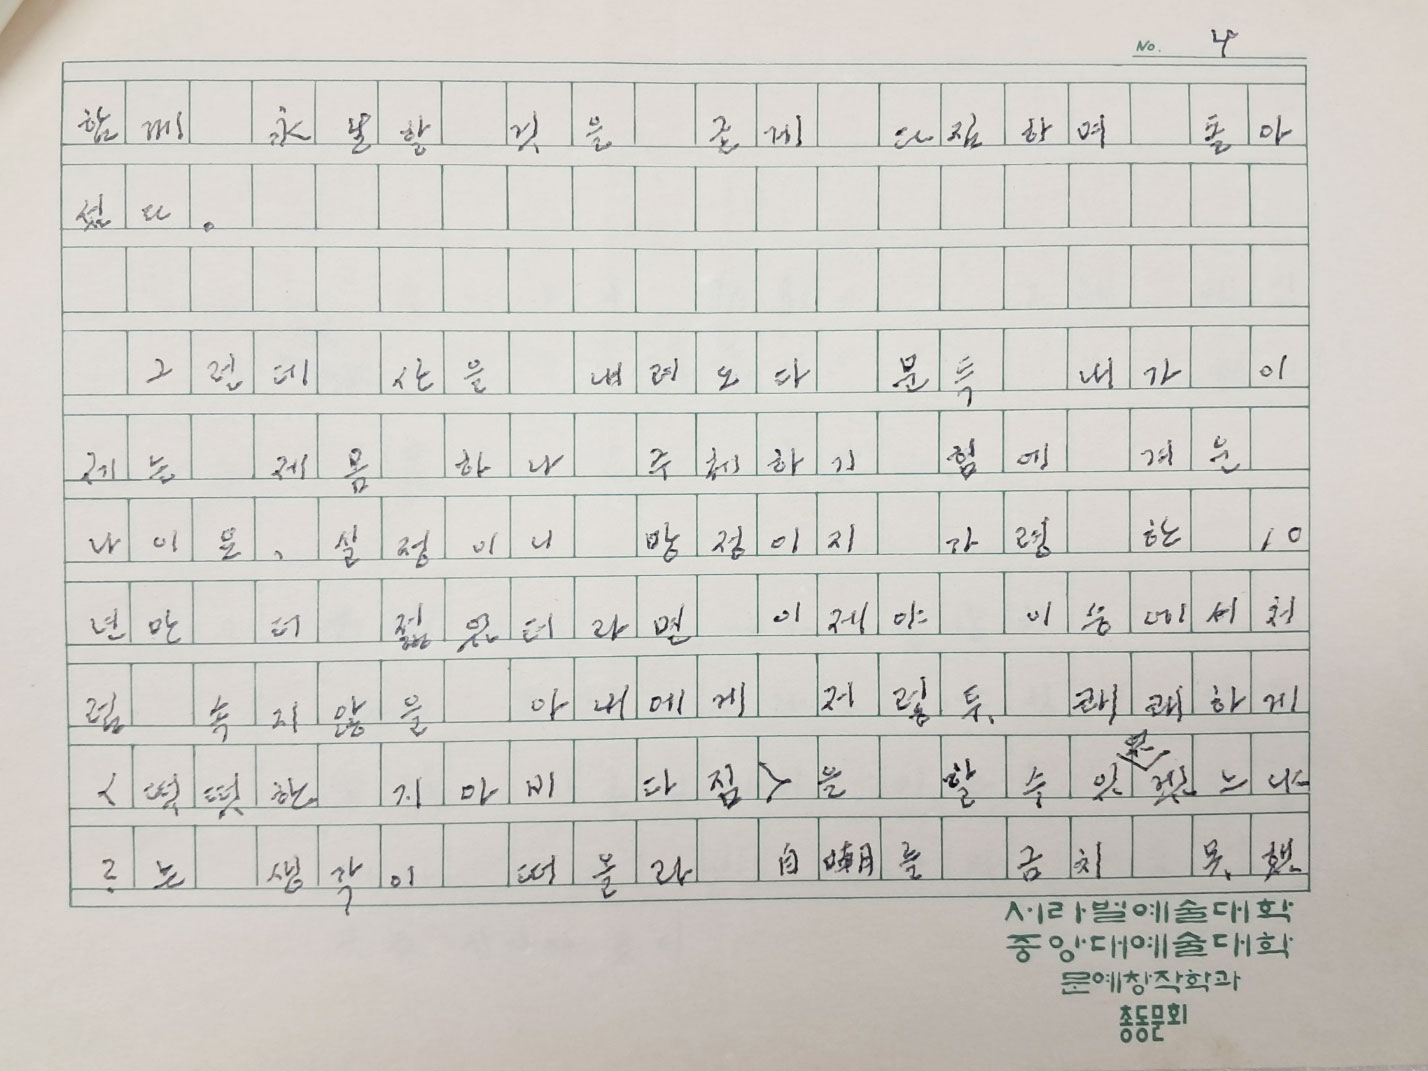 No. 4
함께 할 것을 굳게 다짐하며 돌아
섰다.
그런데 산을 내려오다 문득 내가 이
제는 제몸 하나 주체하기 힘에 겨운
나이은, 실정이니 망정이지 가령 한 10
년만 더 젊었더라면 이제야 이승에서처
럼 속지않을 아내에게 저렇듯 쾌쾌하게
<떳떳한 지아비 다짐>을 할 수
르는 생각이 떠올라 自嘲를 금치 못했
서라벌예술대학
중앙대예술대학
문예창작학과
총동문회